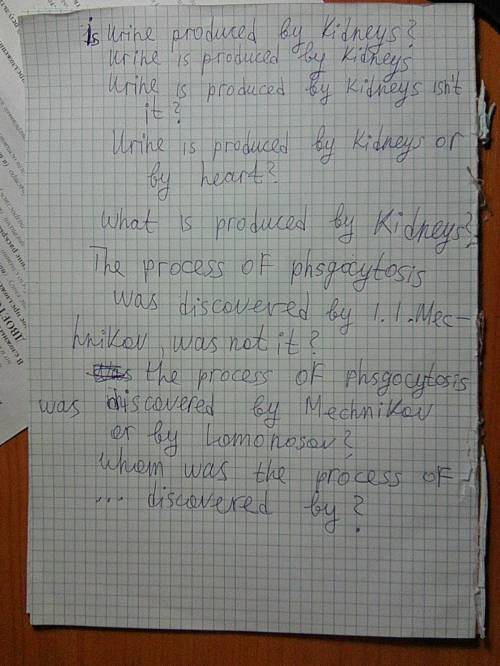 is Urine produced by Kidneys?
Urine is produced by Kidneys
Urine is produced by Kidneys isn't
it?
Urine is produced by Kidneys or
by heart?
What is produced by Kidneys?
The process of phsgocytosis
was discovered by I.I.Mec-
hnikov, was not it?
the process of phsgocytosis
was discovered by Mechnikov
or by Lomonosov?
whom was the process of
... discovered by?